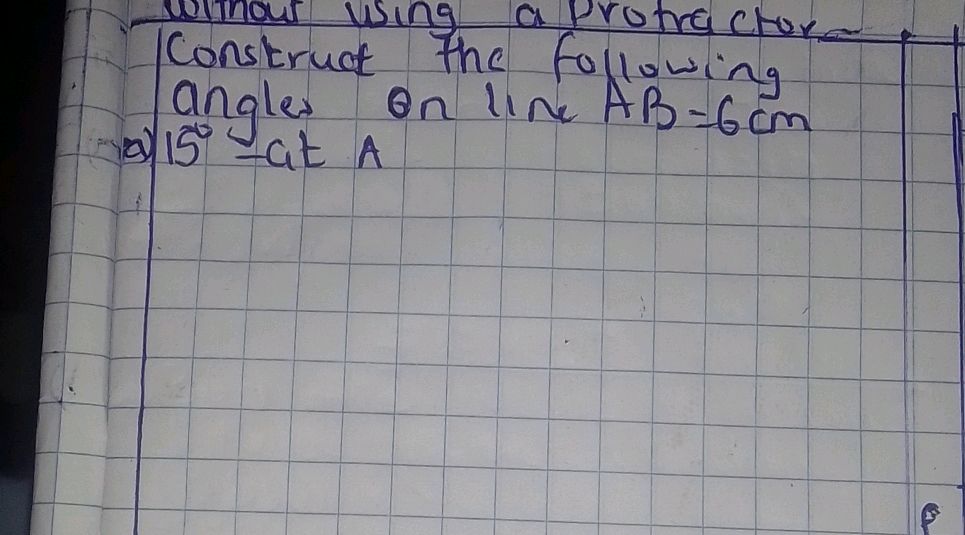 Without using a Protractor
Construct the following
angles on line AB=6cm
a) 15° at A